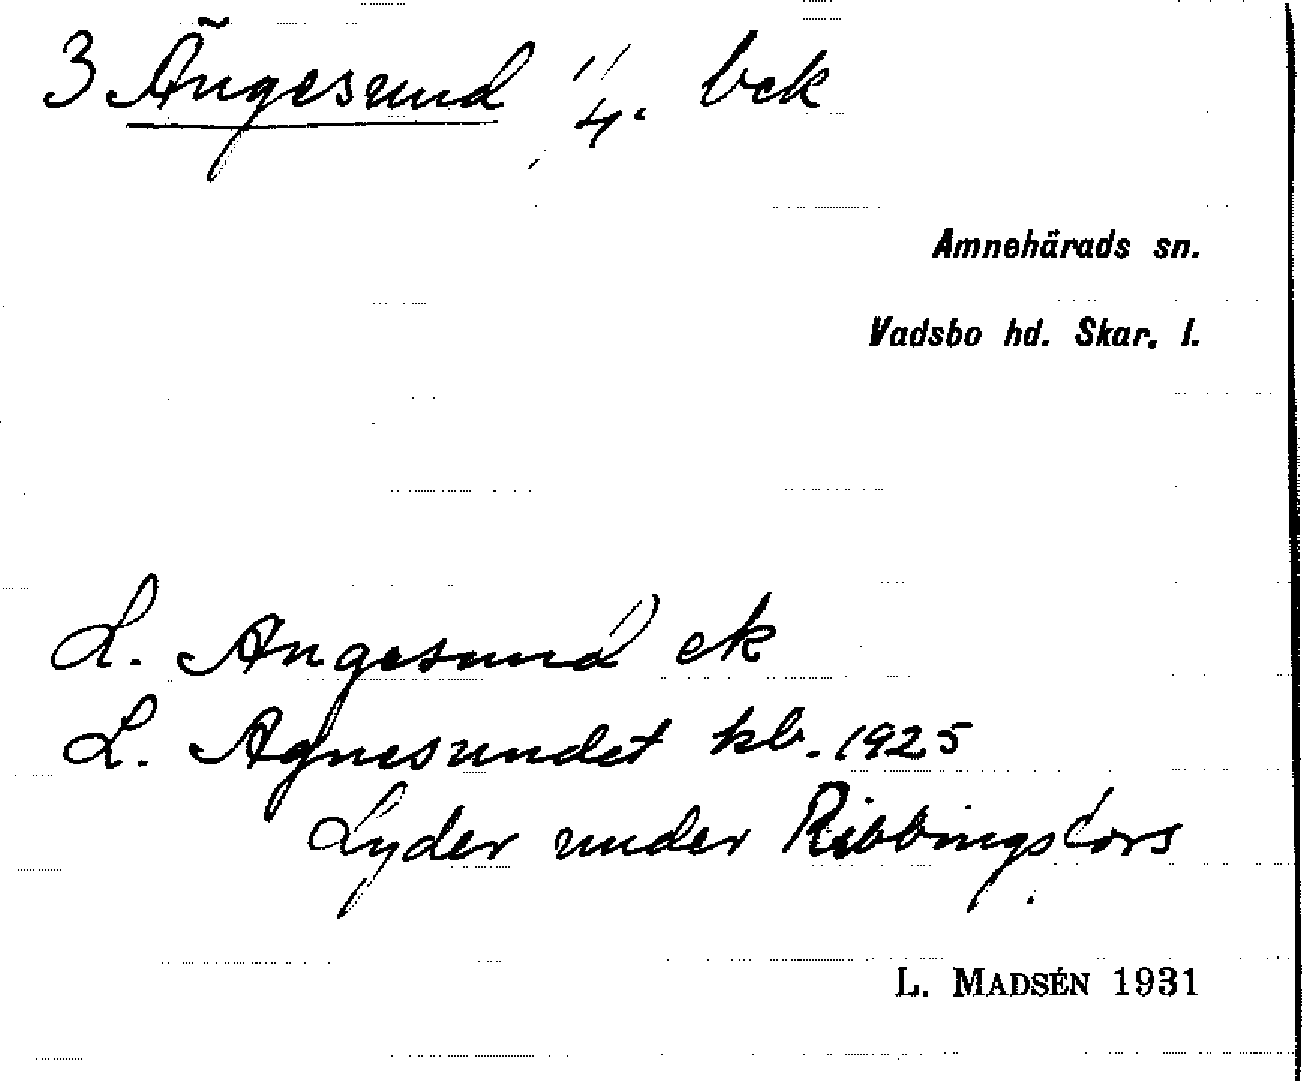 3 Ängesund 1/4. bek
Amnehärads sn.
Vadsbo hd. Skar. l.
L. Ängesund ek
L. Agnesundet kb. 1925
Lyder under Ribbingsfors
L. MADSÉN 1931